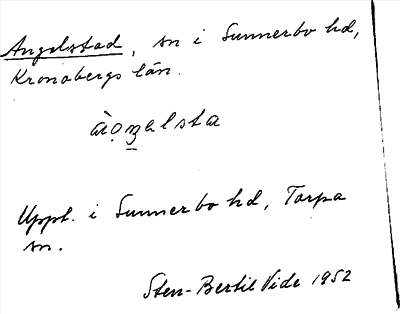 Angelstad, sn i Sunnerbo hd,
Kronobergs län.
Uppt. i Sunnerbo hd, Torpa
sn.
Sten-Bertil Vide 1952